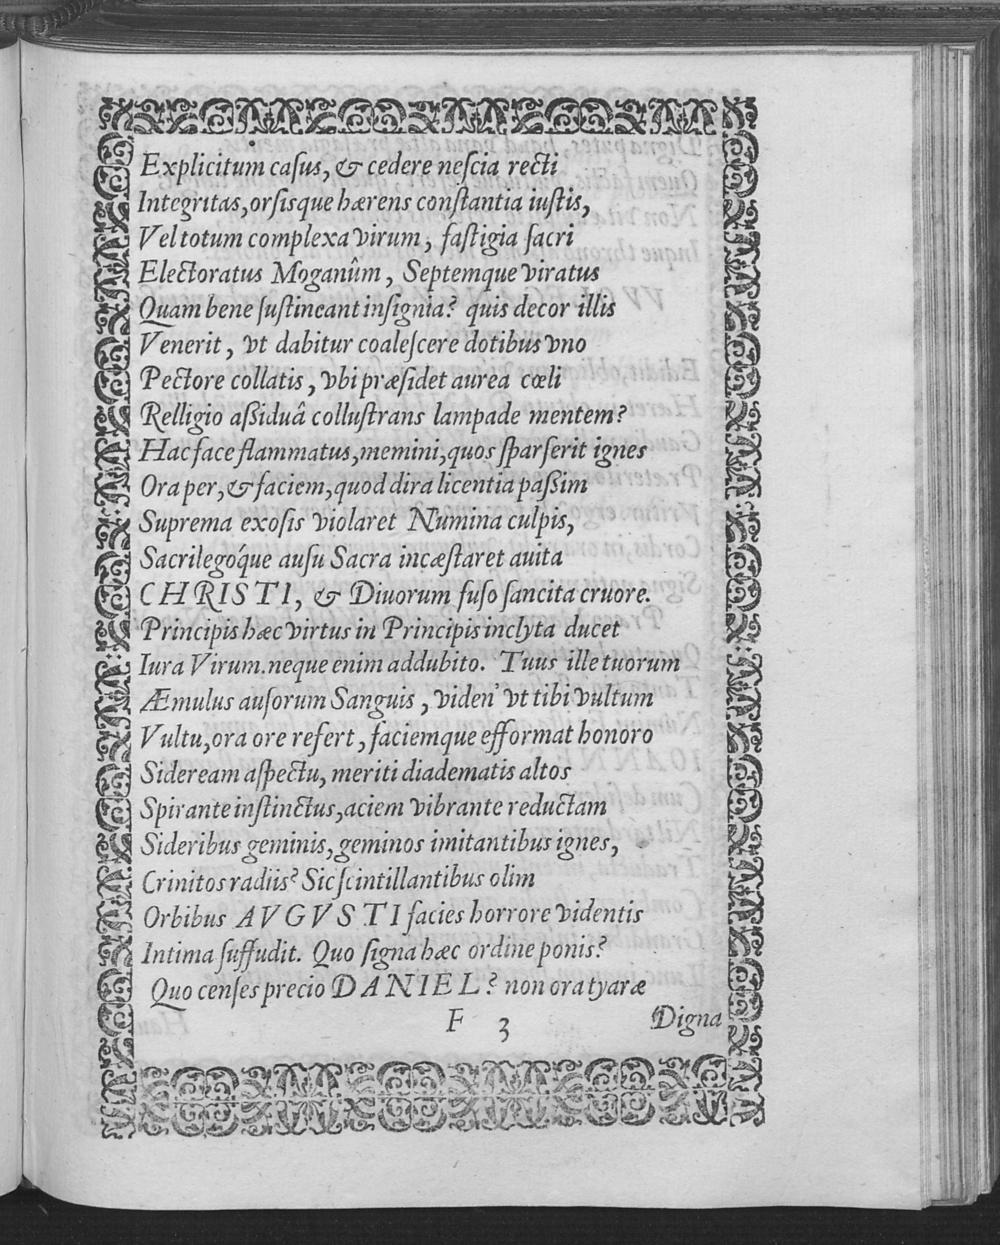 Explicitum casus, & cedere nescia recti
Integritas, orsisque hærens constantia iustis,
Vel totum complexa virum, fastigia sacri
Electoratus Moganûm, Septemque viratus
Quam bene sustineant insignia? quis decor illis
Venerit, vt dabitur coalescere dotibus vno
Pectore collatis, vbi præsidet aurea cœli
Relligio aßiduâ collustrans lampade mentem?
Hac face flammatus, memini, quos sparserit ignes
Ora per, & faciem, quod dira licentia paßim
Suprema exosis violaret Numina culpis,
Sacrilegóque ausu Sacra incæstaret auita
CHRISTI, & Diuorum fuso sancita cruore.
Principis hæc virtus in Principis inclyta ducet
Iura Virum. neque enim addubito. Tuus ille tuorum
Æmulus ausorum Sanguis, viden' vt tibi vultum
Vultu, ora ore refert, faciemque efformat honoro
Sideream aspectu, meriti diadematis altos
Spirante instinctus, aciem vibrante reductam
Sideribus geminis, geminos imitantibus ignes,
Crinitos radiis? Sic scintillantibus olim
Orbibus AVGVSTI facies horrore videntis
Intima suffudit. Quo signa hæc ordine ponis?
Quo censes precio DANIEL? non ora tyaræ
F 3 Digna